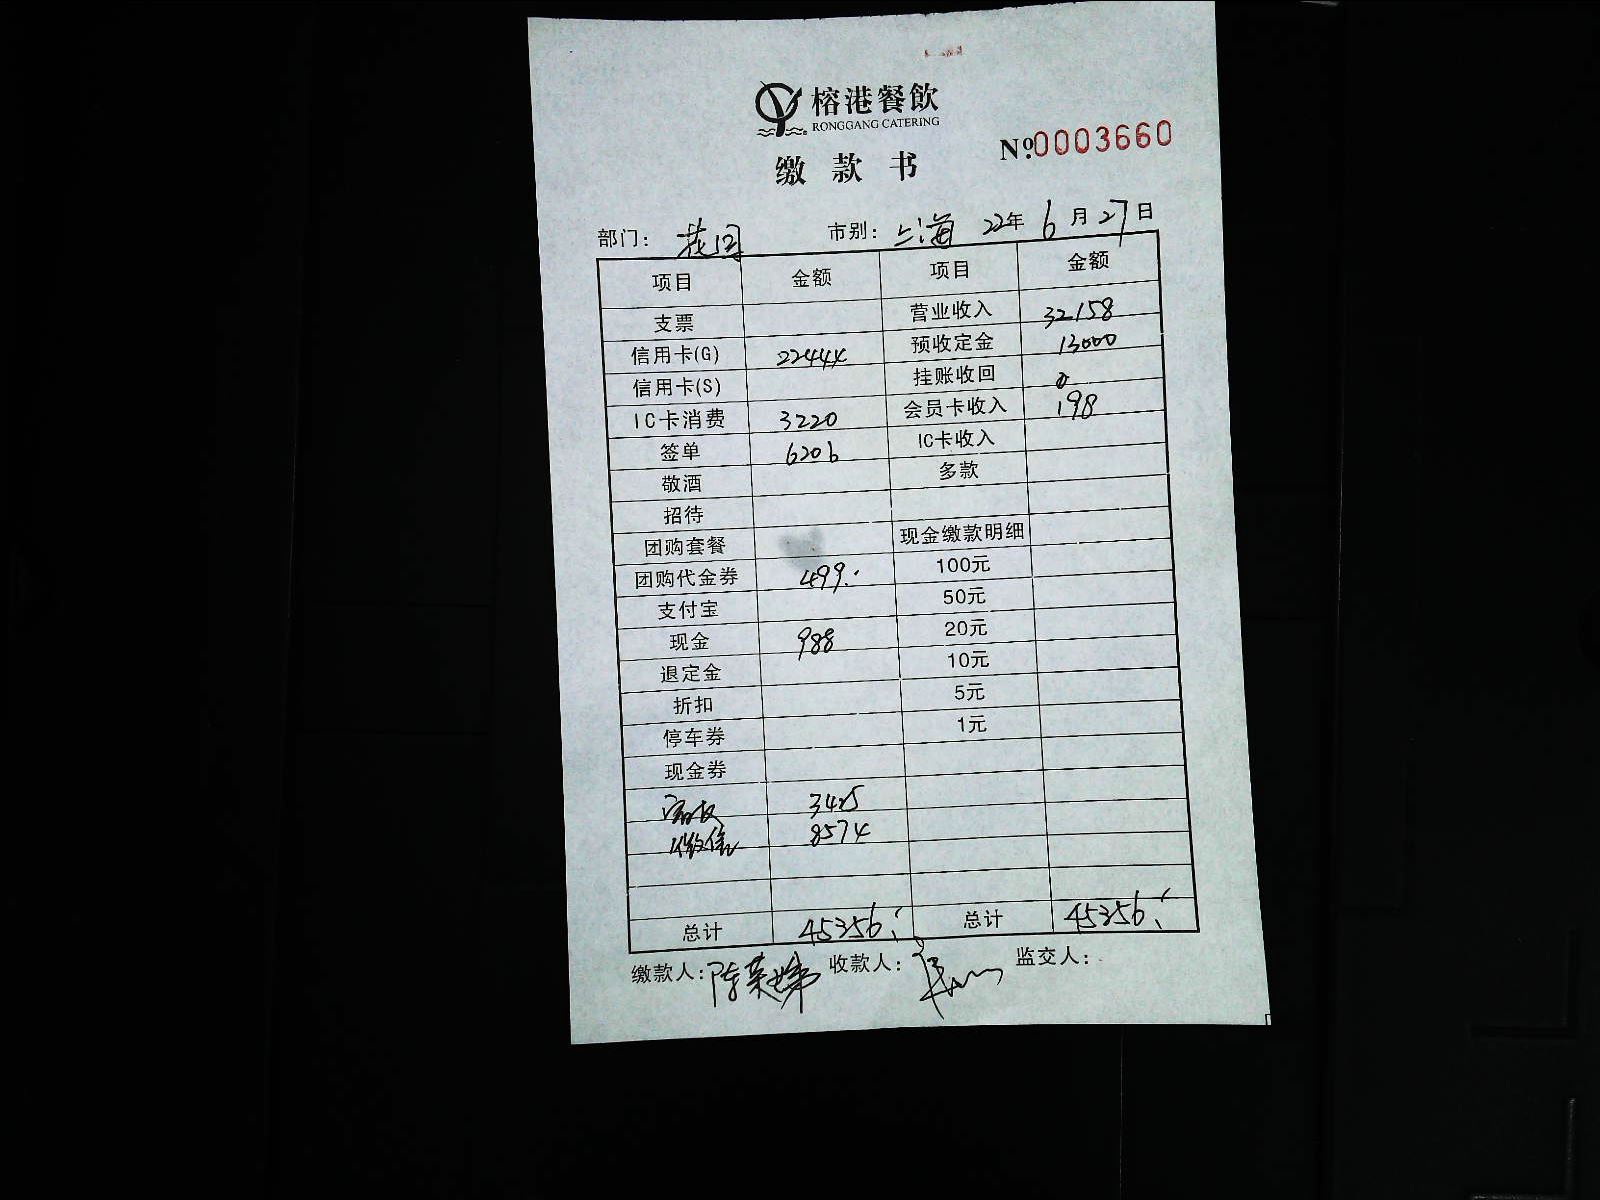 榕港餐飲
RONGGANG CATERING
缴款书
№0003660
部门：花园 市别：上海 22年 6月27日
项目 金额 项目 金额
支票 营业收入 32158
信用卡(G) 22444 预收定金 13000
信用卡(S) 挂账收回 0
IC卡消费 3220 会员卡收入 198
签单 6206 IC卡收入
敬酒 多款
招待
团购套餐 现金缴款明细
团购代金券 499. 100元
支付宝 50元
现金 988 20元
退定金 10元
折扣 5元
停车券 1元
现金券
3425
微信 8574
总计 45356 总计 45356
缴款人：陈 收款人： 监交人：